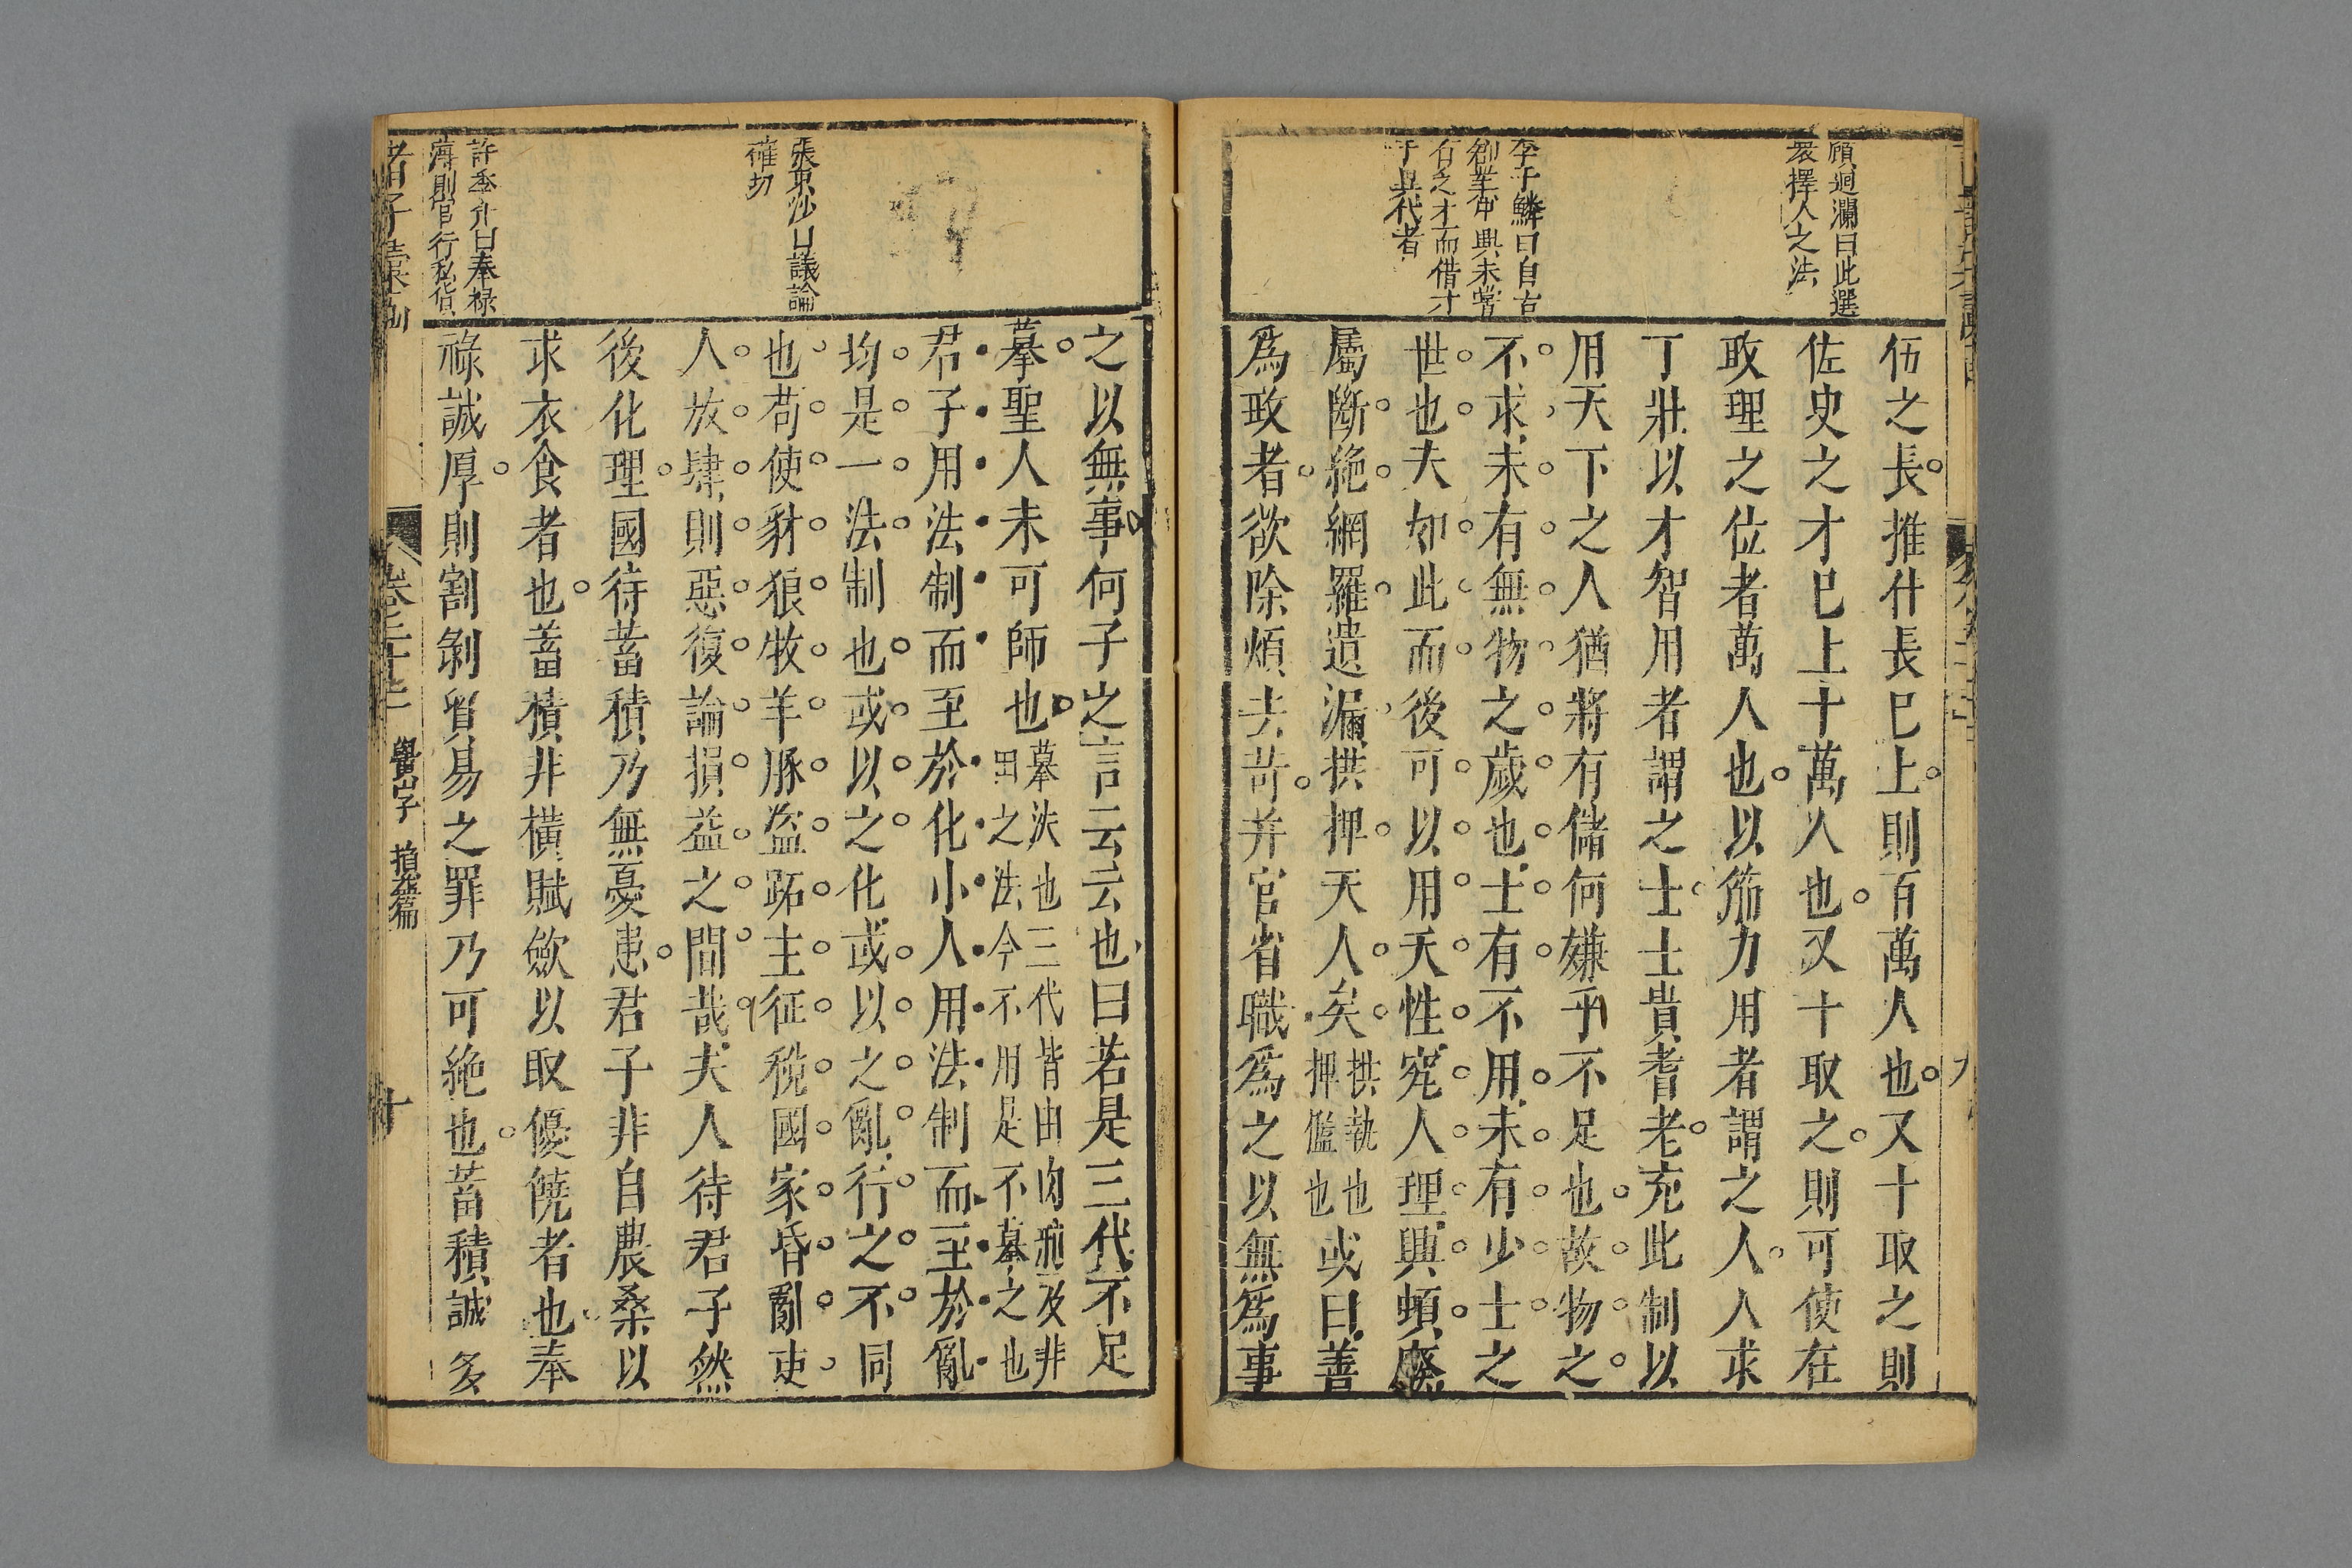 顧迴瀾曰此選
衆擇人之法
李于鱗曰自古
創業中興未嘗
右之才而借才
于異代者
伍之長推什長巳上則百萬人也又十取之則
佐史之才巳上十萬人也又十取之則可使在
政理之位者萬人也以筋力用者謂之人人求
丁壯以才智用者謂之士士貴耆老充此制以
用天下之人猶將有儲何嫌乎不足也故物之
不求未有無物之歲也士有不用未有少士之
世也夫如此而後可以用天性究人理興頓廢
屬斷絶網羅遺漏拱押天人矣
拱執也
押檻也
或曰善
爲政者欲除煩去苛并官省職爲之以無爲事
張東沙曰議論
確切
許季介曰奉禄
薄則官行私貨
之以無事何子之言云云也曰若是三代不足
摹聖人未可師也
摹法也三代皆由肉刑及井
田之法今不用是不摹之也
君子用法制而至於化小人用法制而至於亂
均是一法制也或以之化或以之亂行之不同
也苟使豺狼牧羊豚盜跖主征稅國家昏亂吏
人放肆則惡復論損益之間哉夫人待君子然
後化理國待蓄積乃無憂患君子非自農桑以
求衣食者也蓄積非橫賦斂以取優饒者也奉
祿誠厚則割剝貿易之罪乃可絶也蓄積誠多
卷之二十七
十